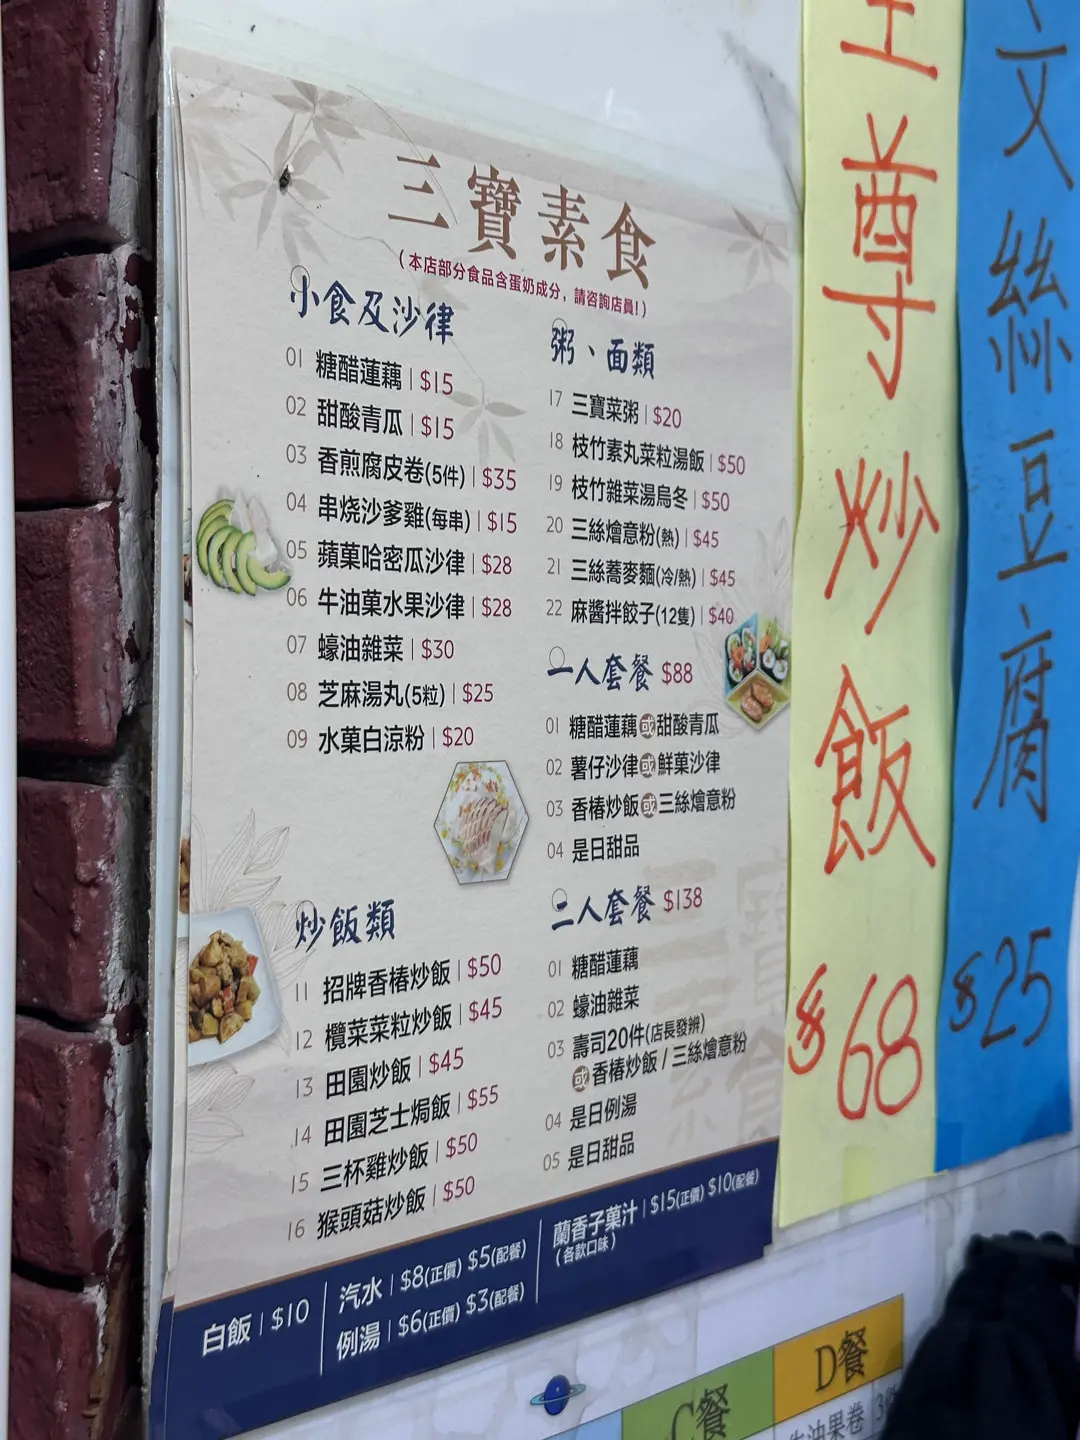 三寶素食
(本店部分食品含蛋奶成分，請咨詢店員!)
小食及沙律
01 糖醋蓮藕 | $15
02 甜酸青瓜 | $15
03 香煎腐皮卷(5件) | $35
04 串燒沙爹雞(每串) | $15
05 蘋菓哈密瓜沙律 | $28
06 牛油菓水果沙律 | $28
07 蠔油雜菜 | $30
08 芝麻湯丸(5粒) | $25
09 水菓白涼粉 | $20
炒飯類
11 招牌香椿炒飯 | $50
12 欖菜菜粒炒飯 | $45
13 田園炒飯 | $45
14 田園芝士焗飯 | $55
15 三杯雞炒飯 | $50
16 猴頭菇炒飯 | $50
粥、面類
17 三寶菜粥 | $20
18 枝竹素丸菜粒湯飯 | $50
19 枝竹雜菜湯烏冬 | $50
20 三絲燴意粉(熱) | $45
21 三絲蕎麥麵(冷/熱) | $45
22 麻醬拌餃子(12隻) | $40
一人套餐 $88
01 糖醋蓮藕或甜酸青瓜
02 薯仔沙律或鮮菓沙律
03 香椿炒飯或三絲燴意粉
04 是日甜品
二人套餐 $138
01 糖醋蓮藕
02 蠔油雜菜
03 壽司20件(店長發辨)
或香椿炒飯 / 三絲燴意粉
04 是日例湯
05 是日甜品
白飯 | $10
汽水 | $8(正價) $5(配餐)
例湯 | $6(正價) $3(配餐)
蘭香子菓汁 | $15(正價) $10(配餐)
(各款口味)
尊炒飯 $68
文絲豆腐 $25
C餐
D餐
牛油果卷